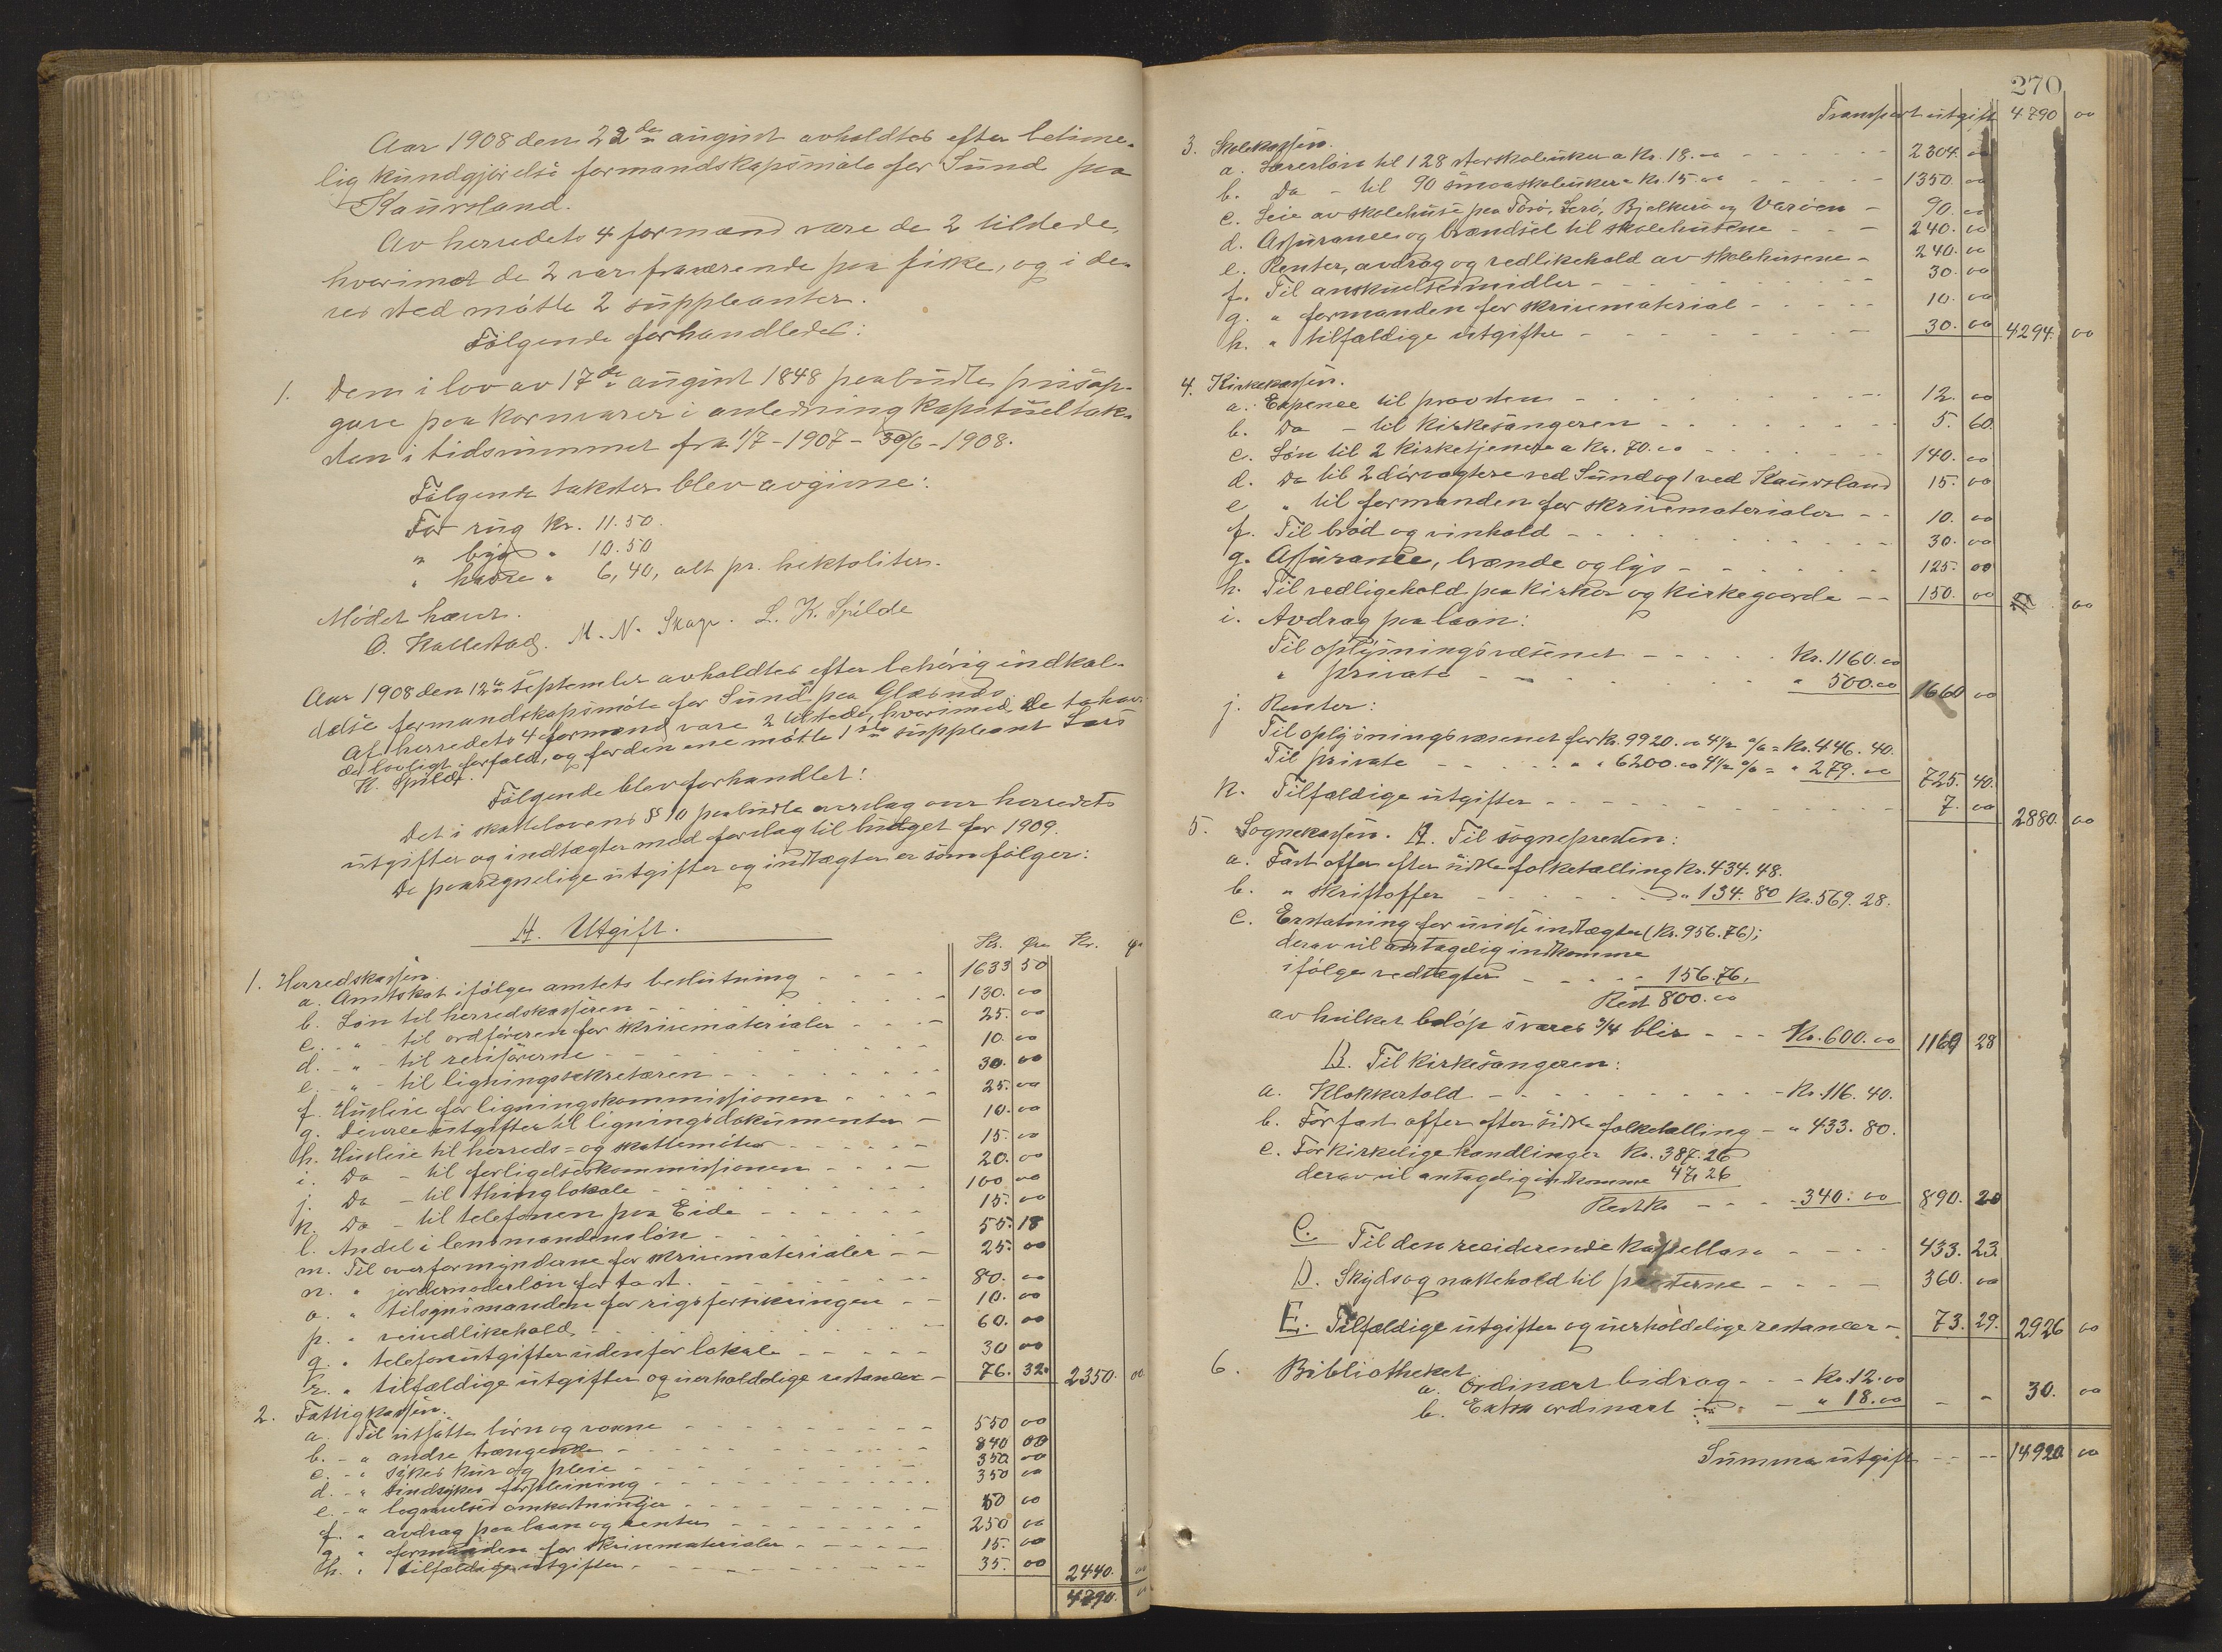 Aar 1908 den 22de august avholdtes efter betime-
lig kundgjörelse formandskapsmöte for Sund paa
Kausland.
Av herredets 4 formænd vare de 2 tilstede,
hvorimot de 2 var fraværende paa fiske, og i de-
res sted mötte 2 suppleanter.
Følgende forhandledes:
1. Dem i lov av 17de august 1848 paabudte prisop-
gave paa kornvarer i anledning kapitueltak-
sten i tidsrummet fra 1/7-1907 - 30/6-1908.
Følgende takster blev avgivne:
For rug kr. 11.50.
" byg " 10.50
" havre " 6,40, alt pr. hektoliter.
Mödet hævet.
O. Hallestad. M. N. Skage. L. K. Spilde
Aar 1908 den 12te september avholdtes efter behörig indkal-
delse formandskapsmöte for Sund paa Glæsnes
Af herredets 4 formænd vare 2 tilstede, hvorimod de to hav-
de lovligt forfald, og for den ene mötte 1ste suppleant Lars
K. Spilde.
Følgende blev forhandlet:
Det i skattelovens §§ 10 paabudte overslag over herredets
utgifter og indtægter med forslag til budget for 1909.
De paaregnelige utgifter og indtægter er som følger:
A. Utgift.
Kr. øre Kr. ør
1. Herredskassen.
a. Amtskat ifölge amtets beslutning - - - - 1633 50
b. Lön til herredskassereren - - - - 130. 00
c. - " - til ordföreren for skrivematerialer - - - 25. 00
d. - " - til revisorerne - - - - 10. 00
e. - " - til ligningssekretæren - - - - 30. 00
f. Husleie for ligningskommissionen - - - - 25. 00
g. Diverse utgifter til ligningsdokumenter - 10. 00
h. Husleie til herreds= og skattemöter - - - - 15. 00
i. Do - til forligelseskommissionen - - - - 20. 00
j. Do - til thinglokale - - - - 100 00
k. Do - til telefonen paa Eide - - - - 15. 00
l. Andel i lensmandens lön - - - - 55. 18
m. Til overformynderne for skrivematerialer - - 25. 00
n. " jordemoderlön fast - - - - 80. 00
o. " tilsynsmanden for rigsforsikringen - - 10. 00
p. " veivedlikehold. - - - - 60. 00
q. " telefonutgifter udenfor lokale - - - - 30 00
r. " tilfældige utgifter og uerholdelige restancer - 76. 32. 2350. 00
2. Fattigkassen.
a. Til utsatte börn og voxne - - - - 550 00
b. - " andre trængende - - - - 840 00
c. - " sykes kur og pleie - - - - 350 00
d. - " sindsykes forpleining - - - - 350 00
e. - " begravelses omkostninger - - - - 50 00
f. " avdrag paa laan og renter - - - - 250 00
g " formanden for skrivematerialer - - - - 15. 00
h. " tilfældige utgifter - - - - 35. 00 2440. 00
4790. 00
270
Transport utgift 4790 00
3. Skolekassen.
a. Lærerlön til 128 storskoleuker a Kr. 18.00 - - - - 2304. 00
b. Do - til 90 smaaskoleuker a Kr. 15.00 - - - - 1350. 00
c. Leie av skolehuse paa Torö, Lerö, Bjelkerö og Varöen - 90. 00
d. Assurance og brændsel til skolehusene - - - 240. 00
e. Renter, avdrag og vedlikehold av skolehusene - 240. 00
f. Til anskuelsesmidler - - - - 30. 00
g. " formanden for skrivematerial - - - - 10. 00
h. " tilfældige utgifter - - - - 30. 00 4294. 00
4. Kirkekassen.
a. Expence til provsten - - - - 12. 00
b. Do - til kirkesangeren - - - - 5. 60.
c. Lön til 2 kirketjenere a Kr. 70.00 - - - - 140. 00
d. Do til 2 dörvogtere ved Sund og 1 ved Kausland 15. 00
e " til formanden for skrivematerialer - - 10. 00
f. Til bröd og vinhold - - - - 30. 00
g. Assurance, brænde og lys - - - - 125. 00
h. Til vedligehold paa kirker og kirkegaarde - - 150. 00 00
i. Avdrag paa laan:
Til oplysningsvæsenet - - - - Kr. 1160.00
" private - - - - " 500.00 1660 00
j. Renter:
Til oplysningsvæsenet for Kr. 9920.00 4½ % = Kr. 446.40.
Til private - - - - " " 6200.00 4½ % = " 279.00 725. 40.
k. Tilfældige utgifter - - - - 7. 00 2880. 00
5. Sognekassen. A. Til sognepresten:
a. Fast offer efter sidste folketælling Kr. 434.48.
b. " skriftoffer - - - - " 134.80 Kr. 569.28.
c. Erstatning for uvisse indtægter (Kr. 956.76);
derav vil antagelig indkomme
ifölge vedtægter - - - - 156.76.
Rest 800.00
av hvilket belöp svares 3/4 blir - - - Kr. 600.00 1169 28
B. Til kirkesangeren:
a. Klokkertold - - - - Kr. 116.40.
b. For fast offer efter sidste folketælling - " 433.80.
c. For kirkelige handlinger Kr. 387.26
derav vil antagelig indkomme 47.26
Rest Kr - - - - 340.00 890. 20
C. Til den residerende kapellan - - - - 433. 23.
D. Skyds og nattehold til presterne - - - - 360. 00
E. Tilfældige utgifter og uerholdelige restancer - 73. 29. 2926 00
6. Bibliotheket
a. Ordinært bidrag - - - Kr. 12.00
b. Extra ordinært - - - " 18.00 - - 30. 00
Summa utgift - - - - 14920 00